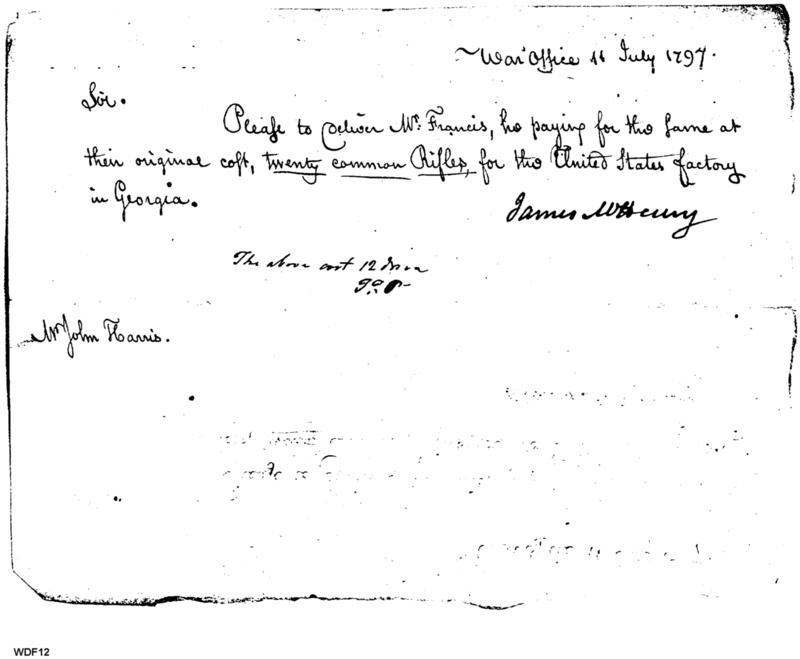 War Office 11 July 1797.
Sir.
Please to deliver Mr. Francis, he paying for the same at
their original cost, twenty common Rifles, for the United States factory
in Georgia.
James McHenry
The above cost 12
Mr John Harris.
WDF12